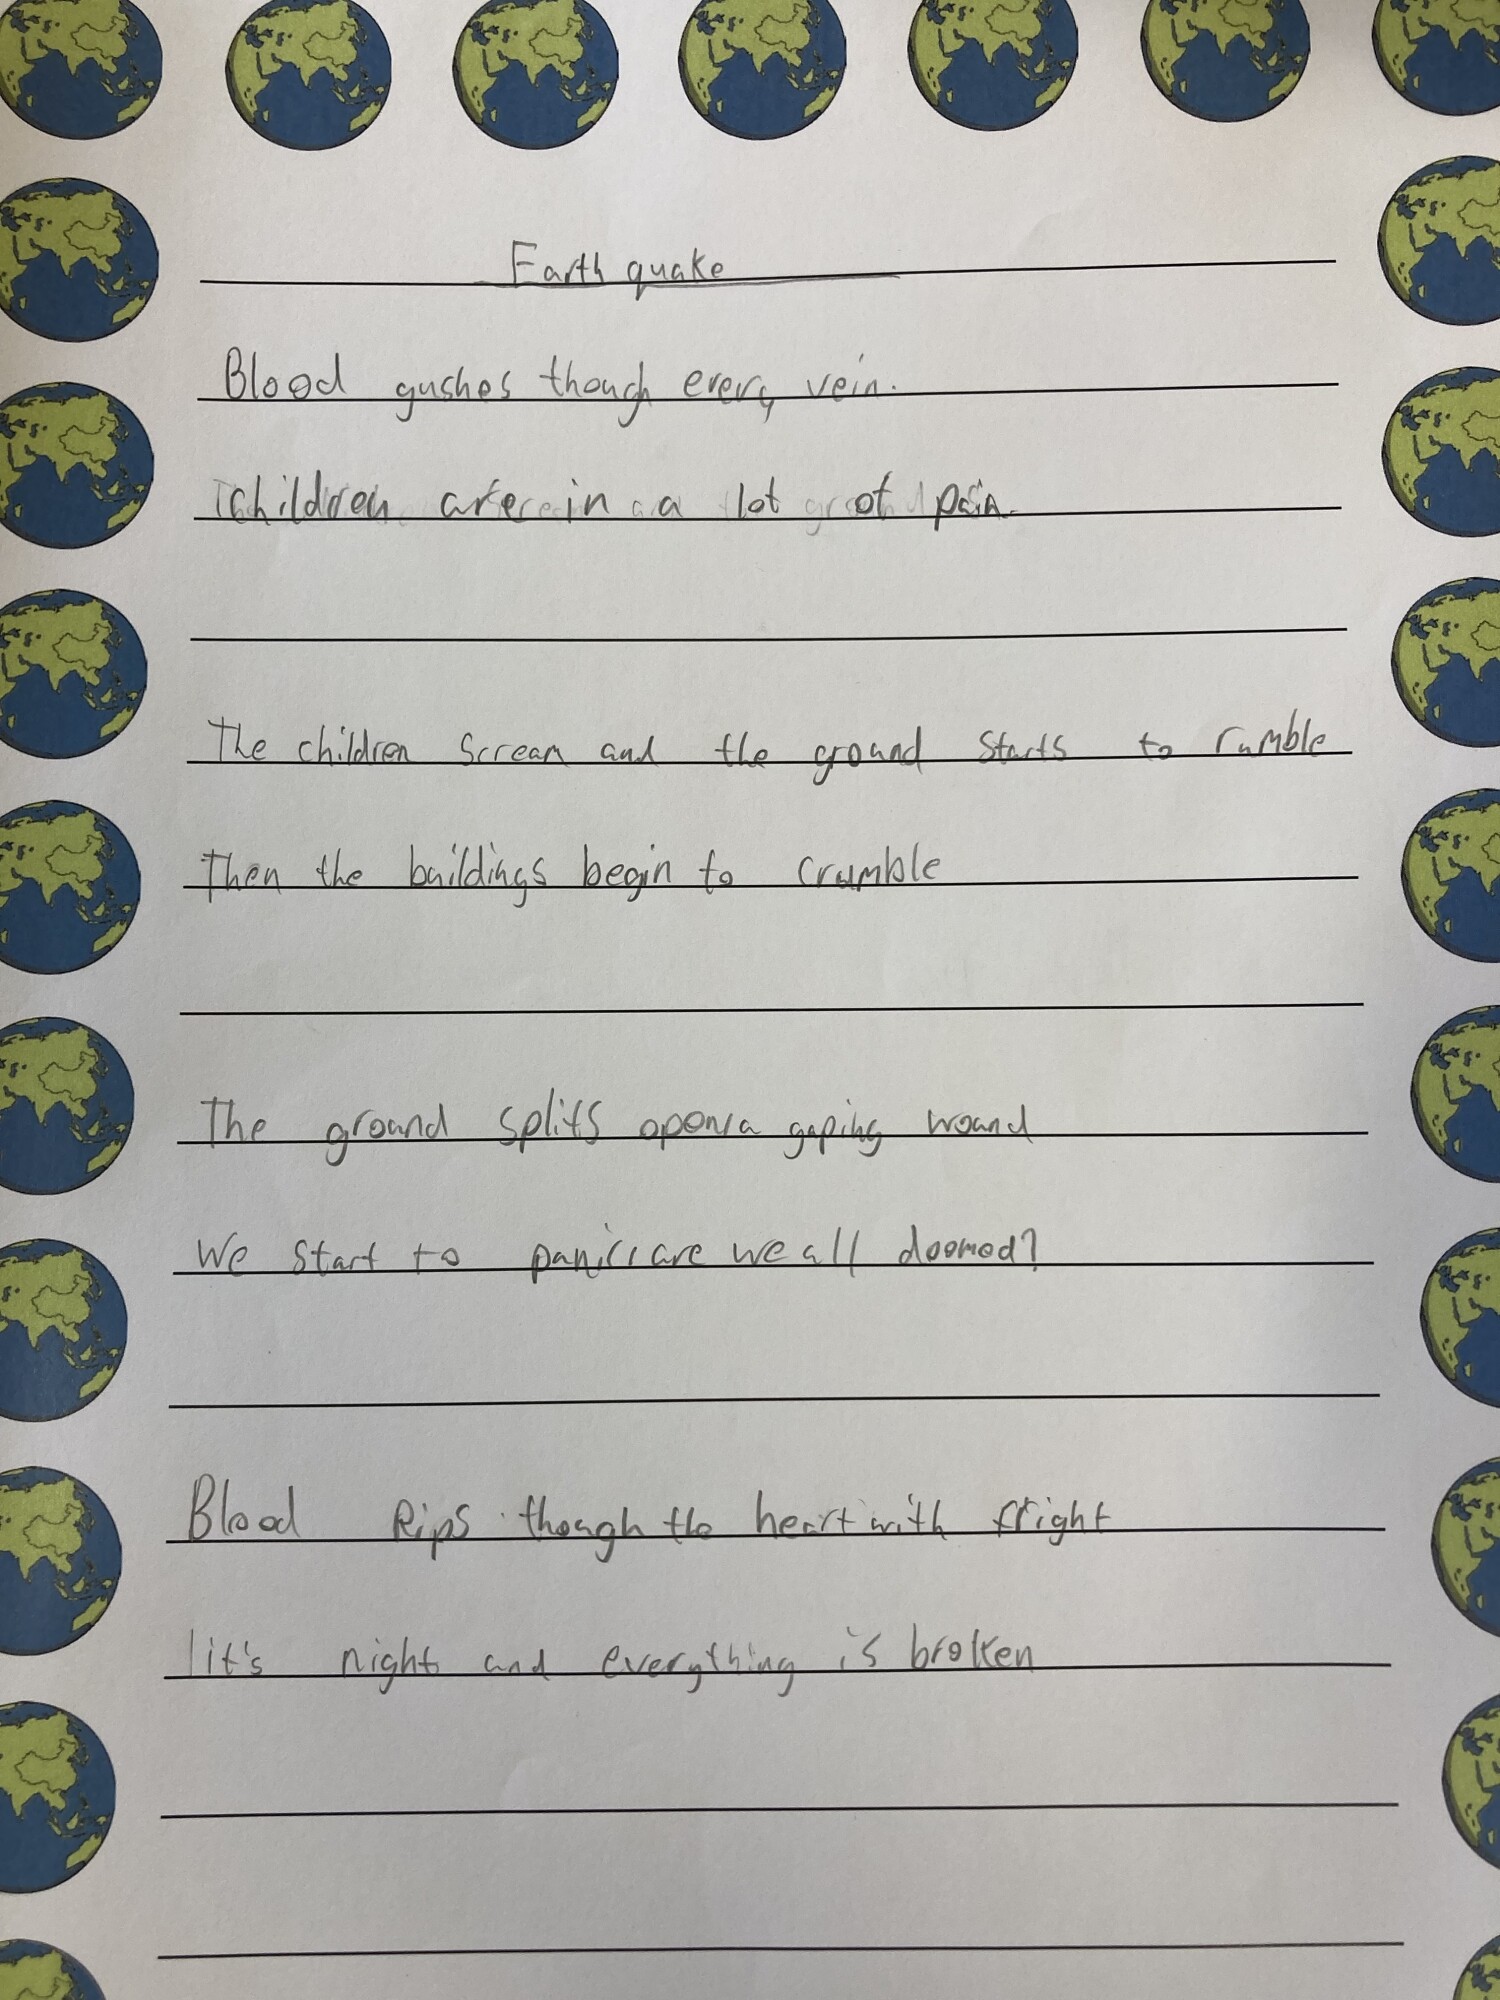 Earth quake
Blood gushes though every vein.
children are in a lot of pain.
The children scream and the ground starts to rumble
Then the buildings begin to crumble
The ground splits open, a gaping wound
We start to panic, are we all doomed?
Blood Rips though the heart with fright
it's night and everything is broken